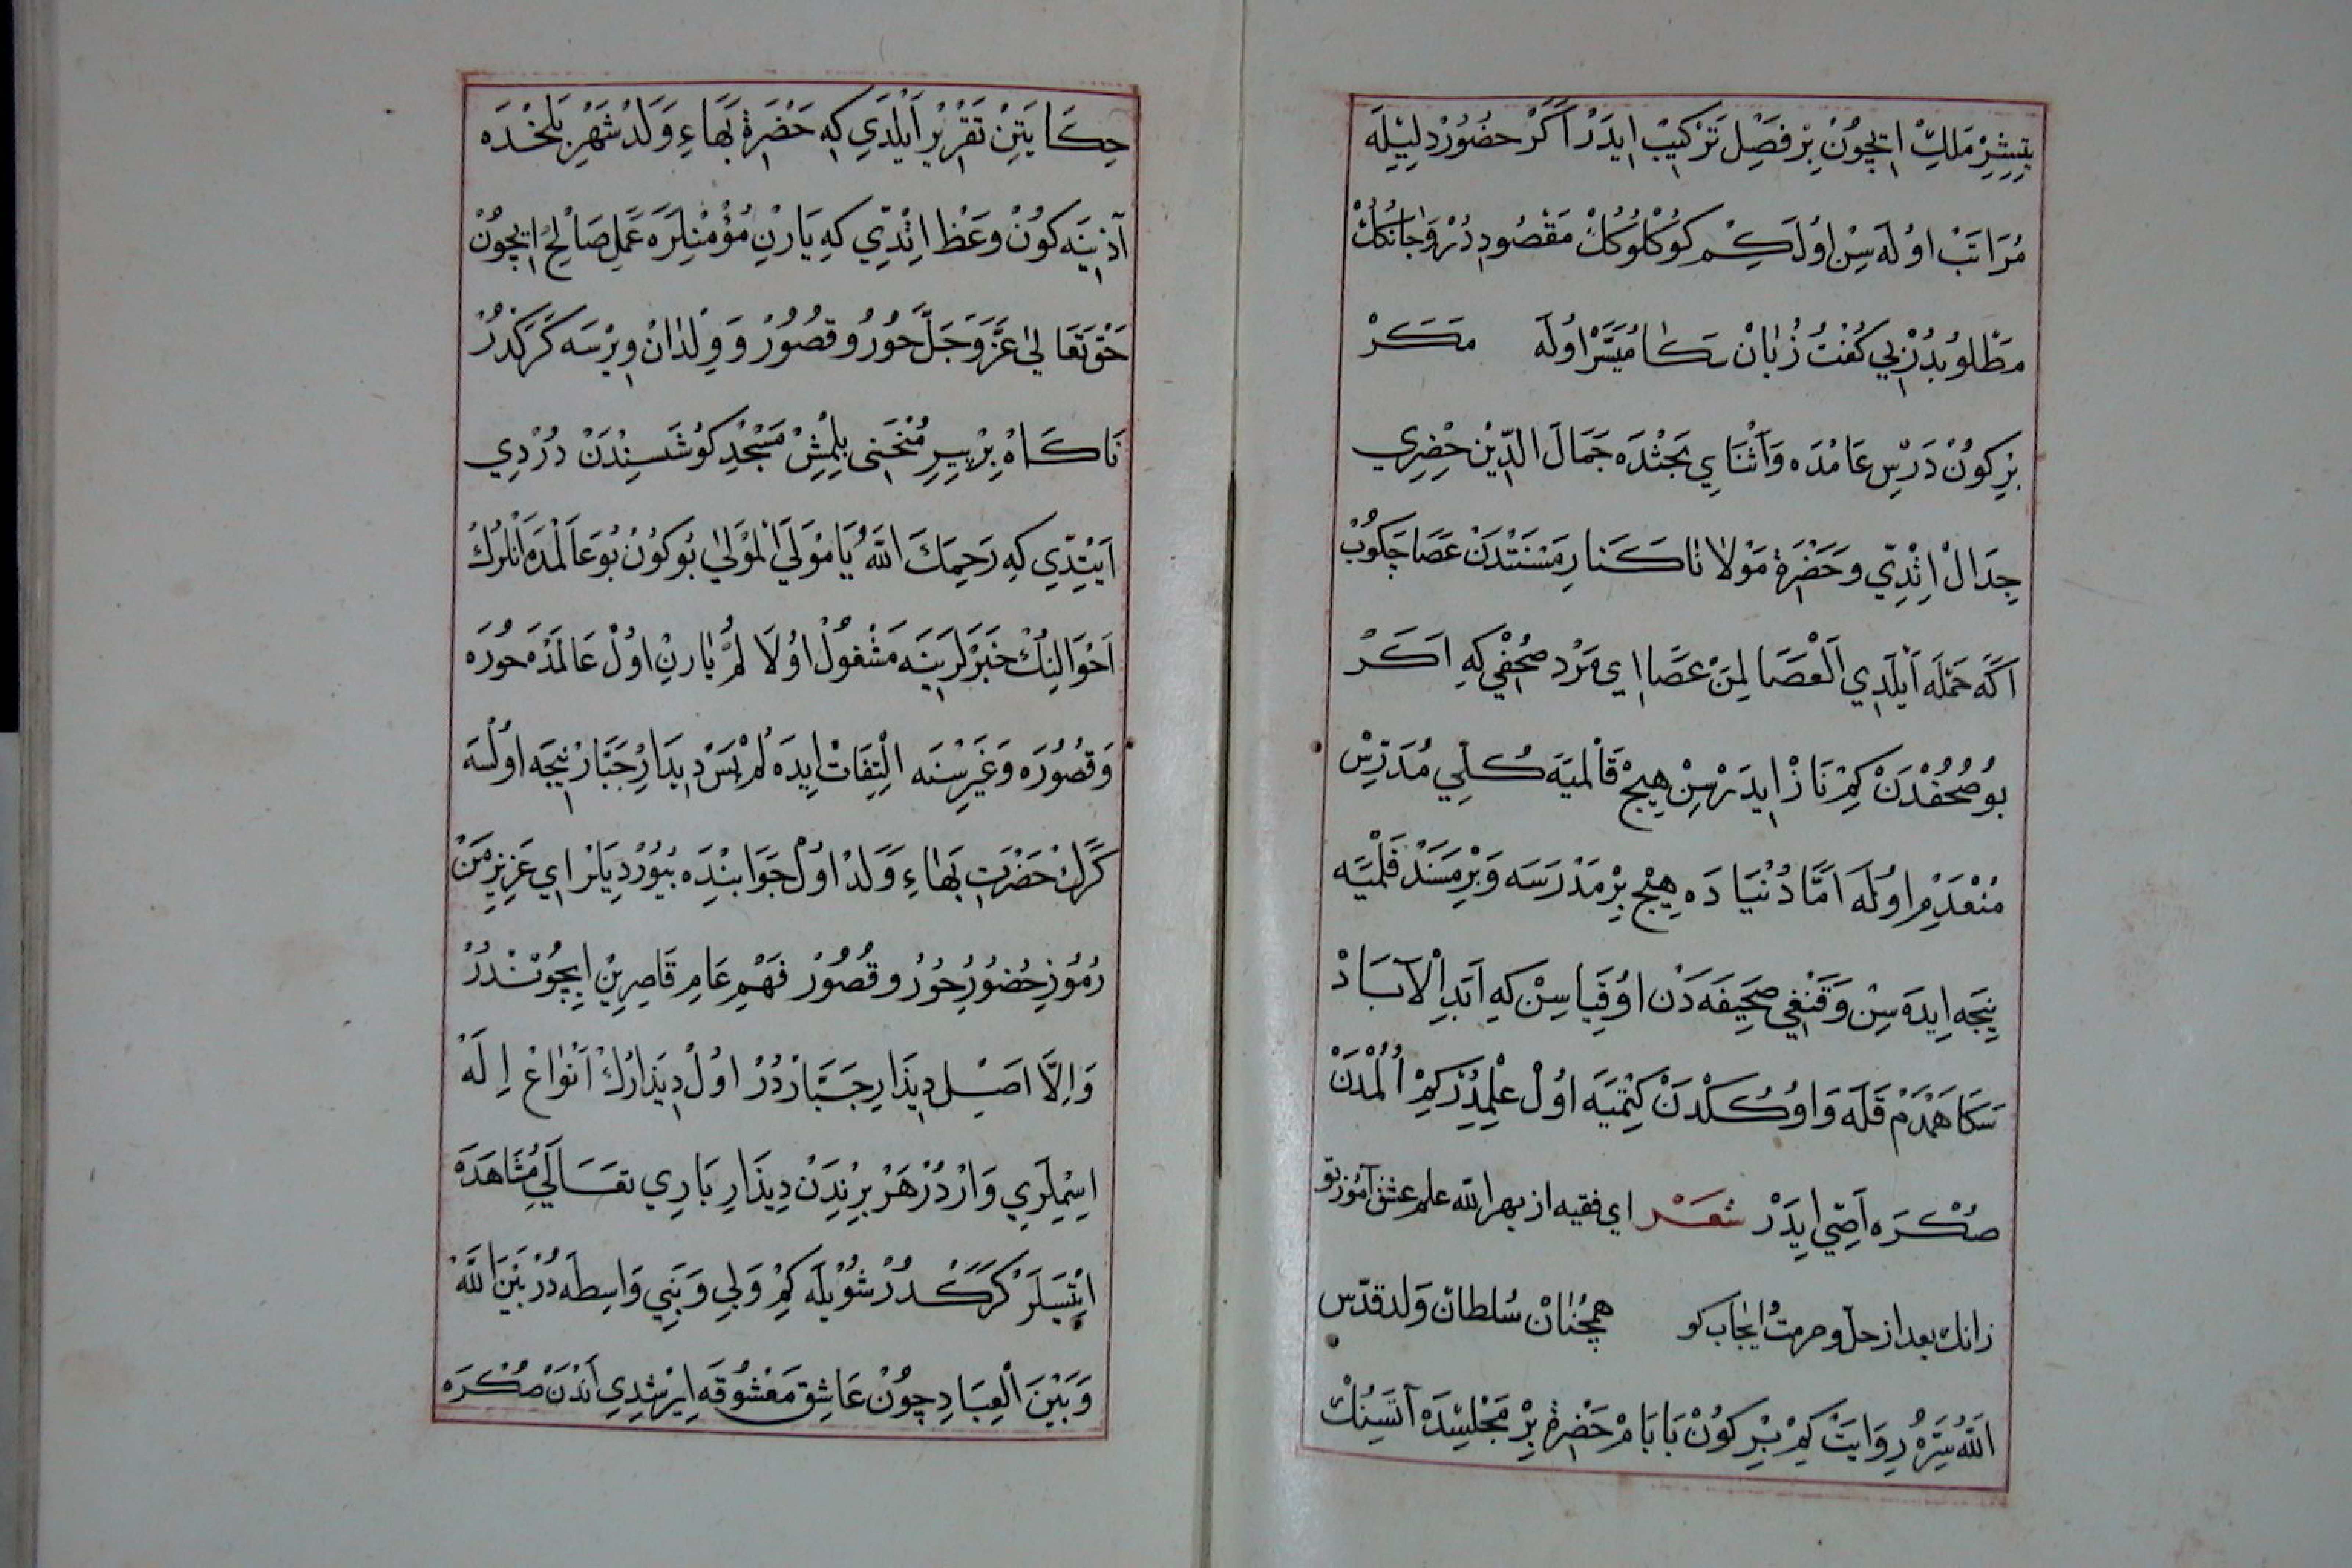 يتيشر ملك ايچون بر فصل تركيب ايدر اكر حضور دليله
مراتب اوله سين اول كم كوكلوكك مقصوددر و جانكك
مطلوبدر بي كفت زبان سكا ميسر اوله مكر
بر كون درس عامده و اثناي بحثده جمال الدين حضري
جدال اتدي و حضرة مولانا كنار مسنتدن عصا چكوب
اكه حمله ايلدي العصا لمن عصا اي مرد صحفي كه اكر
بو صحفدن كم ناز ايدرسن هيچ قالميه كلي مدرس
منعدم اوله اما دنياده هيچ بر مدرسه و بر مسند قلميه
نيجه ايده سن و قنغي صحيفه دن اوقيا سن كه ابد الآباد
سكا همدم قله و اوككدن كتميه اول علمدر كم المدن
صكره اصي ايدر شعر اي فقيه از بهر الله علم عشق آموز تو
زانك بعد از حل و حرمت ايجاب كو همچنان سلطان ولد قدس
الله سره روايت كم بر كون بابام حضرة بر مجلسده آتسنك
حكايتن تقرير ايلدي كه حضرة بهاء ولد شهر بلخده
آذينه كون وعظ اتدي كه يارن مؤمنلره عمل صالح ايچون
حق تعالي عز و جل حور و قصور و ولدان ويرسه كركدر
ناكاه بر پير منحنى بلمش مسجد كوشه سندن دردي
ايتدي كه رحمك الله يا مولي المولي بو كون بو عالمده انلرك
احوالنك خبرلرينه مشغول اولا لم يارن اول عالمده حوره
و قصوره و غيرسنه التفات ايده لم پس ديدار جبار نيجه اولسه
كرك حضرت بهاء ولد اول جوابنده بيوردي يانر اي عزيز من
رموز حضور حور و قصور فهم عام قاصرين ايچوندر
و الا اصل ديذار جباردر اول ديذارك انواع اله
اسملري واردر هر برندن ديذار باري تعالي مشاهده
اتسلر كركدر شويله كم ولي و نبي واسطه در بين الله
و بين العباد چون عاشق معشوقه ايرشدي اندن صكره